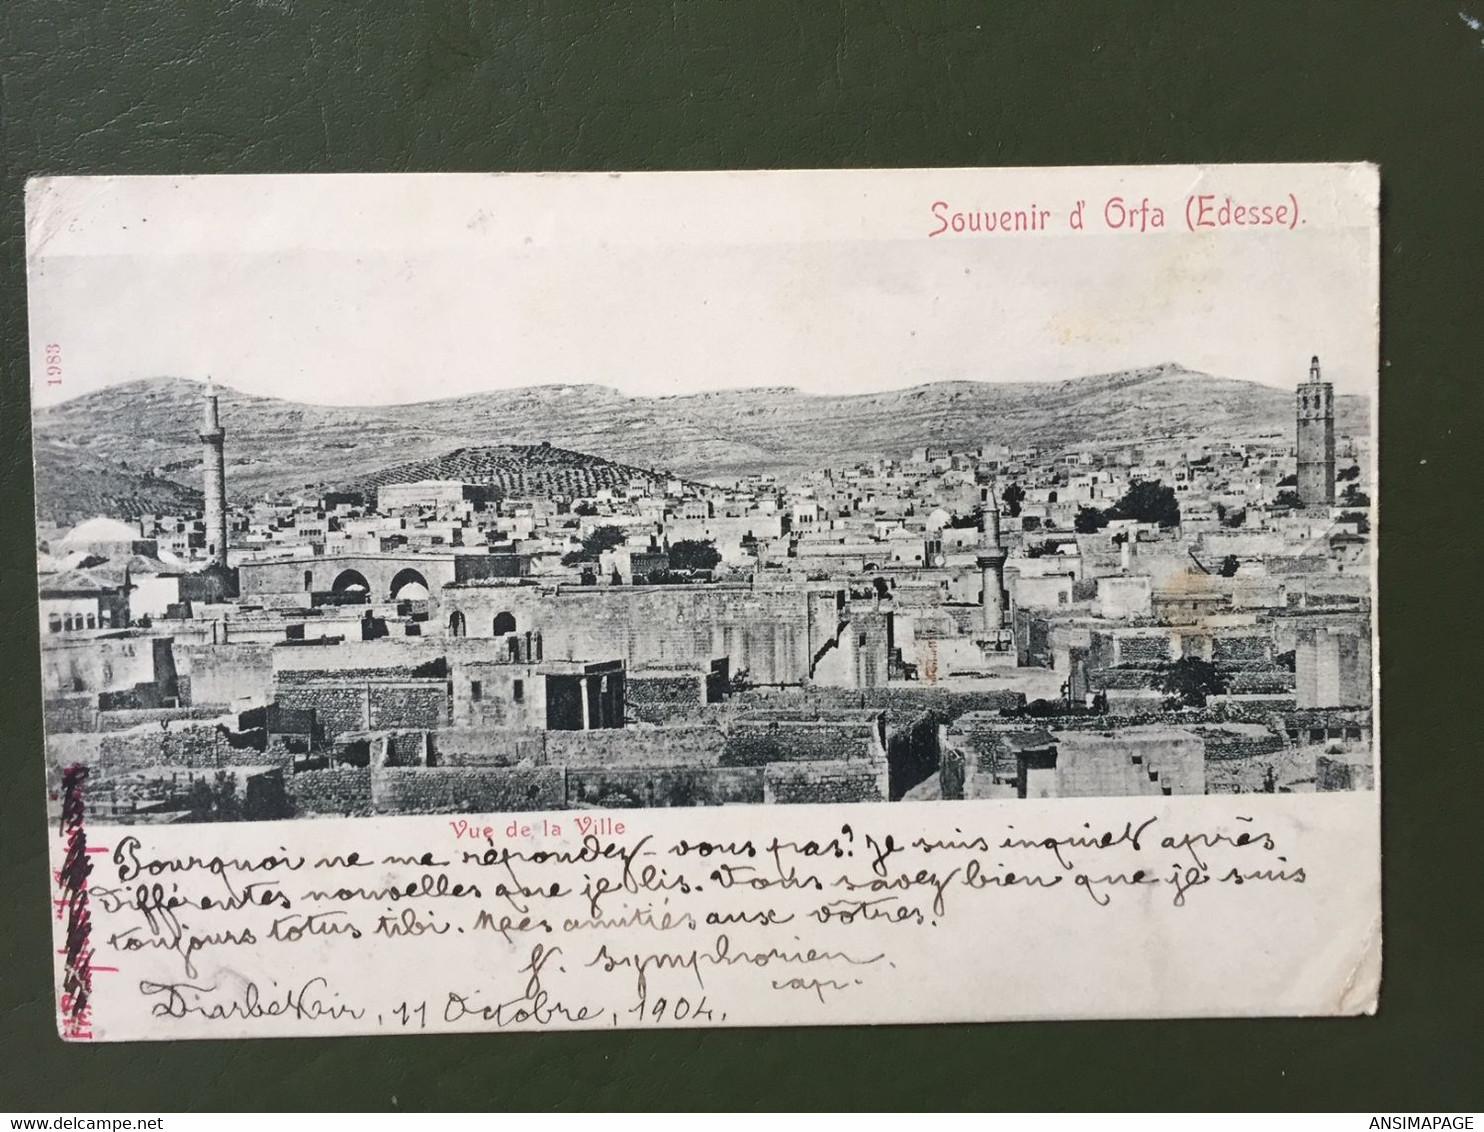 Souvenir d' Orfa (Edesse).
1983
Vue de la Ville
Pourquoi ne me répondez-vous pas? Je suis inquiet après
différentes nouvelles que je lis. Vous savez bien que je suis
toujours totus tibi. Mes amitiés aux vôtres.
f. Symphorien.
cap.
Diarbékir, 11 Octobre, 1904.
ANSIMAPAGE